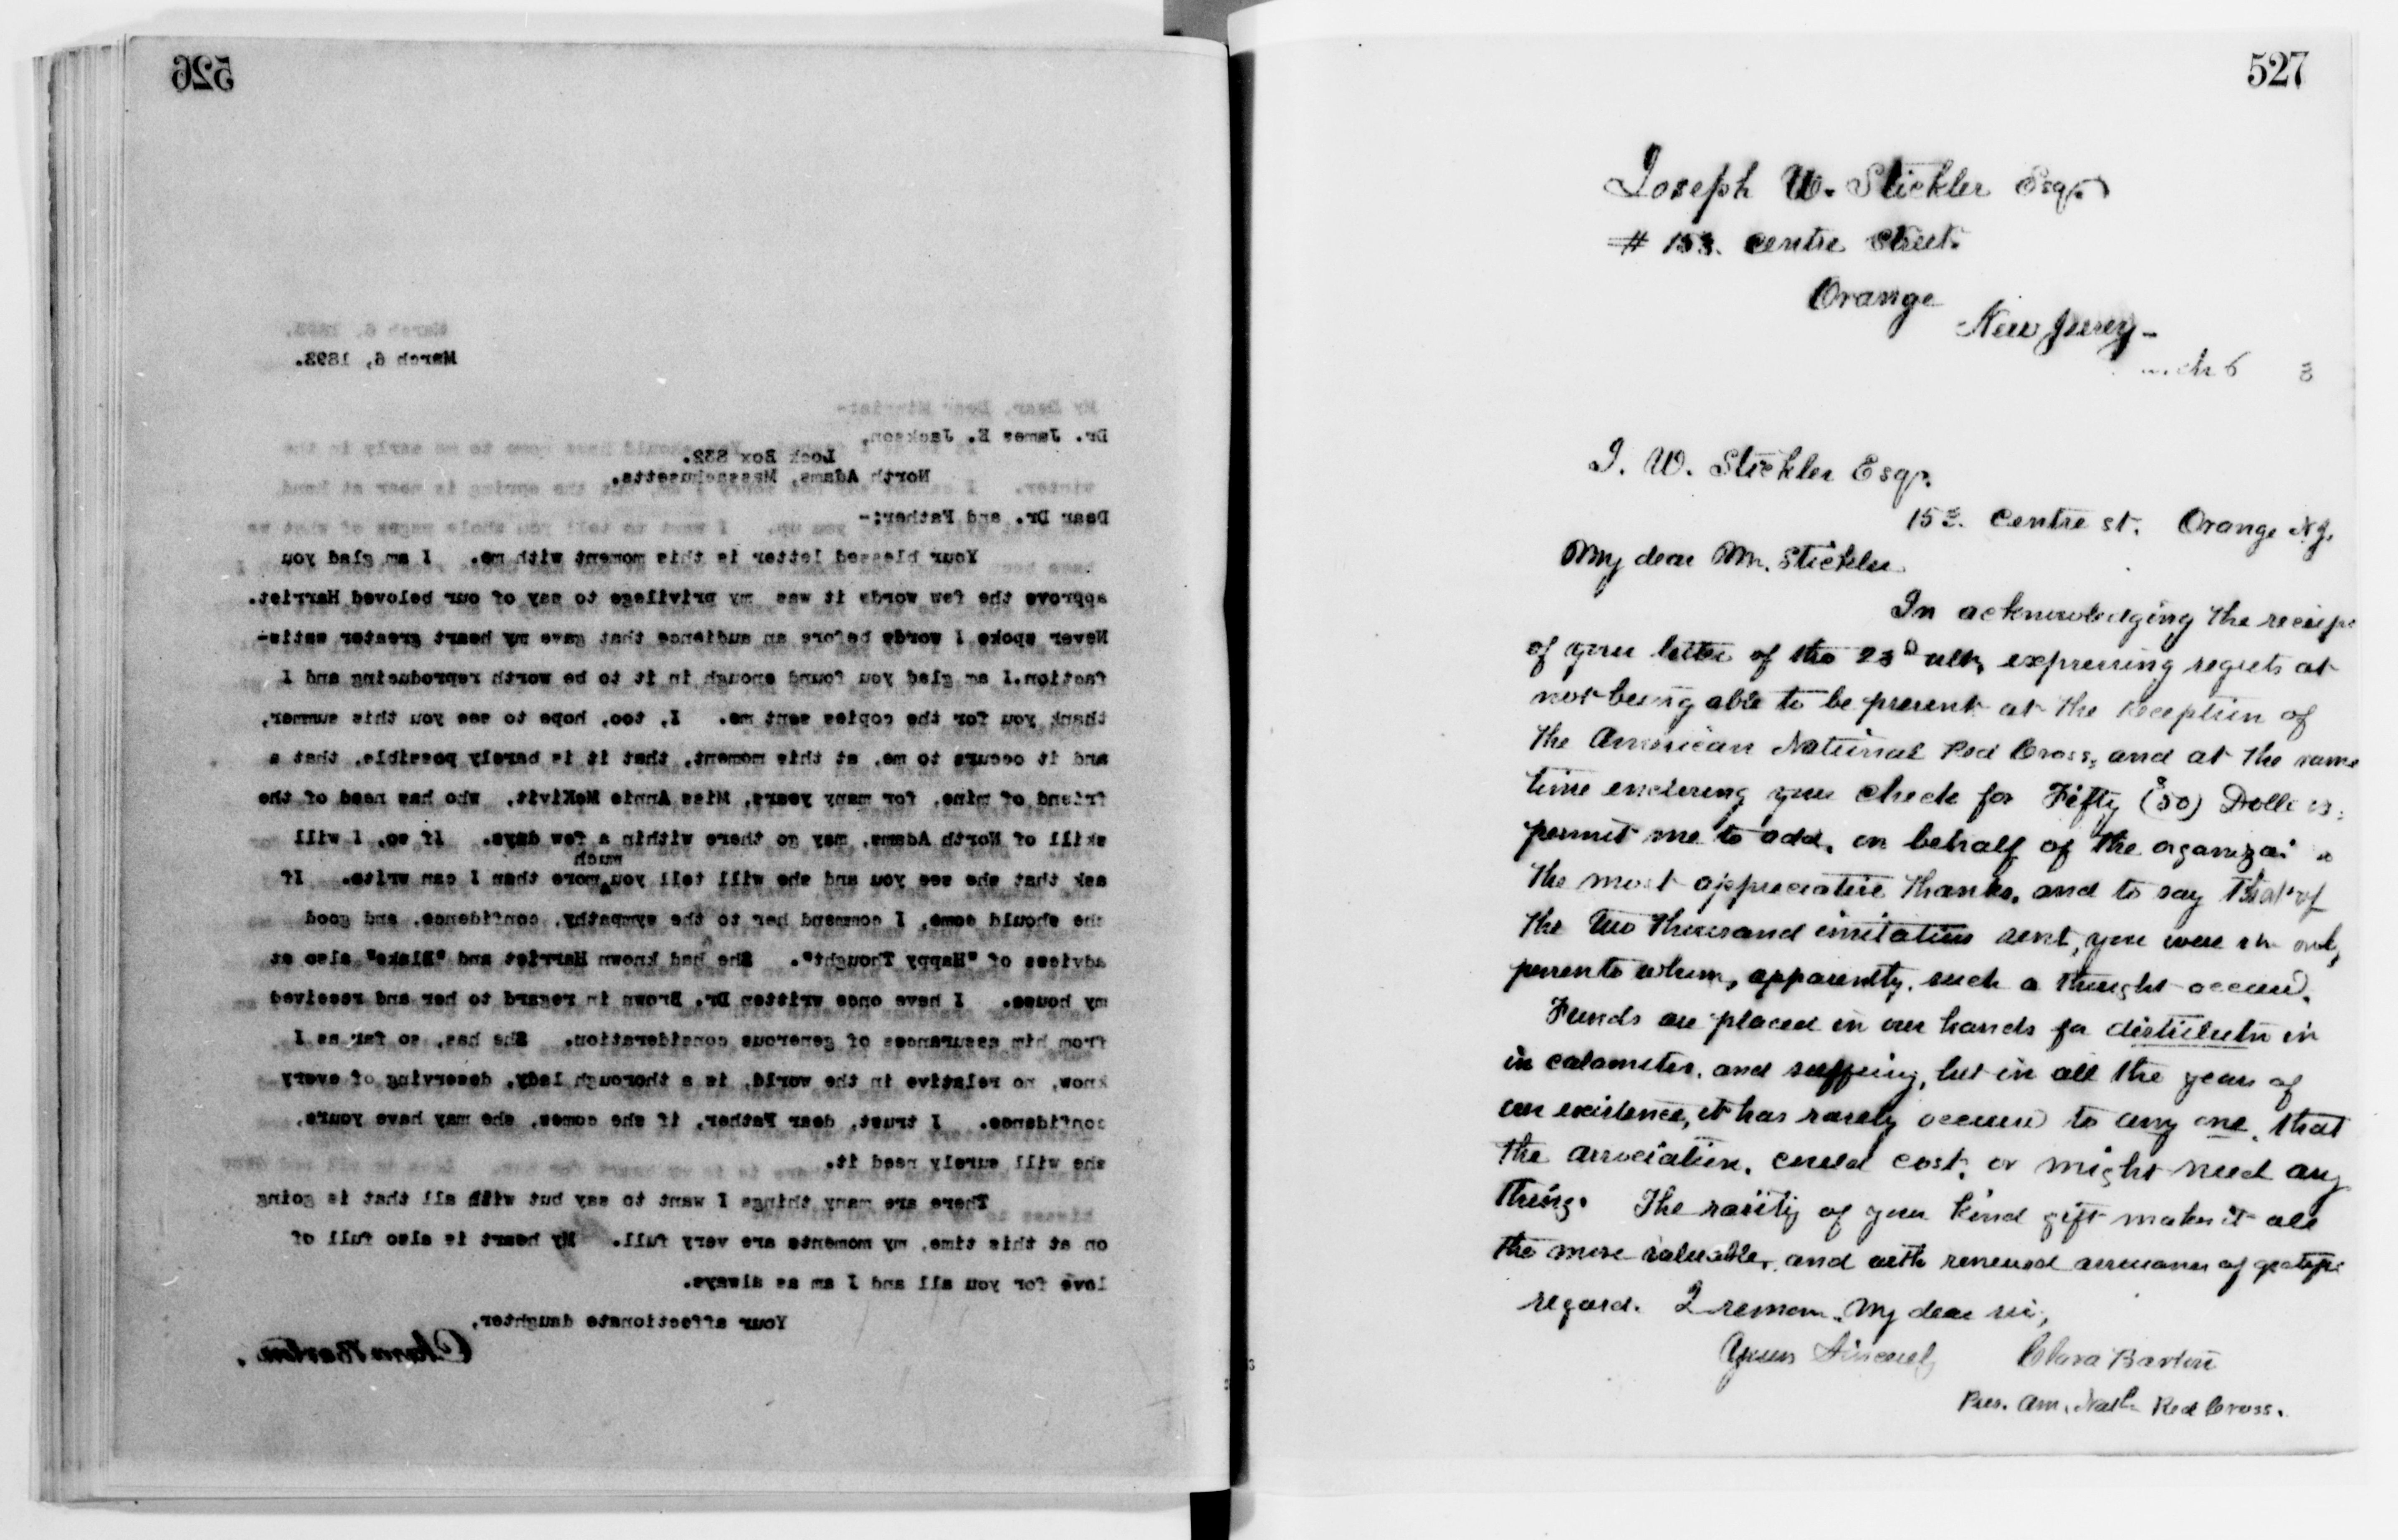 526
March 6, 1893.
Dr. James E. Jackson,
Lock Box 832.
North Adams, Massachusetts.
Dear Dr. and Father:-
Your blessed letter is this moment with me. I am glad you
approve the few words it was my privilege to say of our beloved Harriet.
Never spoke I words before an audience that gave my heart greater satis-
faction. I am glad you found enough in it to be worth reproducing and I
thank you for the copies sent me. I, too, hope to see you this summer,
and it occurs to me, at this moment, that it is barely possible, that a
friend of mine, for many years, Miss Annie McKivit, who has need of the
skill of North Adams, may go there within a few days. If so, I will
much
ask that she see you and she will tell you more than I can write. If
she should come, I commend her to the sympathy, confidence, and good
advices of "Happy Thought". She had known Harriet and "Blake" also at
my house. I have once written Dr. Brown in regard to her and received
from him assurances of generous consideration. She has, so far as I
know, no relative in the world, is a thorough lady, deserving of every
confidence. I trust, dear Father, if she comes, she may have yours,
she will surely need it.
There are many things I want to say but with all that is going
on at this time, my moments are very full. My heart is also full of
love for you all and I am as always.
Your affectionate daughter,
Clara Barton.
527
Joseph W. Stickler Esqr.
# 153. Centre Street.
Orange
New Jersey-
ch 6 3
J. W. Stickler Esqr.
153. Centre st. Orange N.J.
My dear Mr. Stickler
In acknowledging the receipt
of your letter of the 23d ult, expressing regrets at
not being able to be present at the reception of
the American National Red Cross, and at the same
time enclosing your check for Fifty ($50) Dollars;
permit me to add, on behalf of the
the most appreciative thanks, and to say that of
the two thousand invitations sent, you were the only
person to whom, apparently, such a thought occured.
Funds are placed in our hands for distributn in
in calamities, and suffering, but in all the years of
our existence, it has rarely occured to any one, that
the association, could cost, or might need any
thing. The rarity of your kind gift makes it all
the more valuable, and with renewed assurances of grateful
regard. I remain, My dear sir,
Yours Sincerely Clara Barton
Pres. Am. Natl. Red Cross.